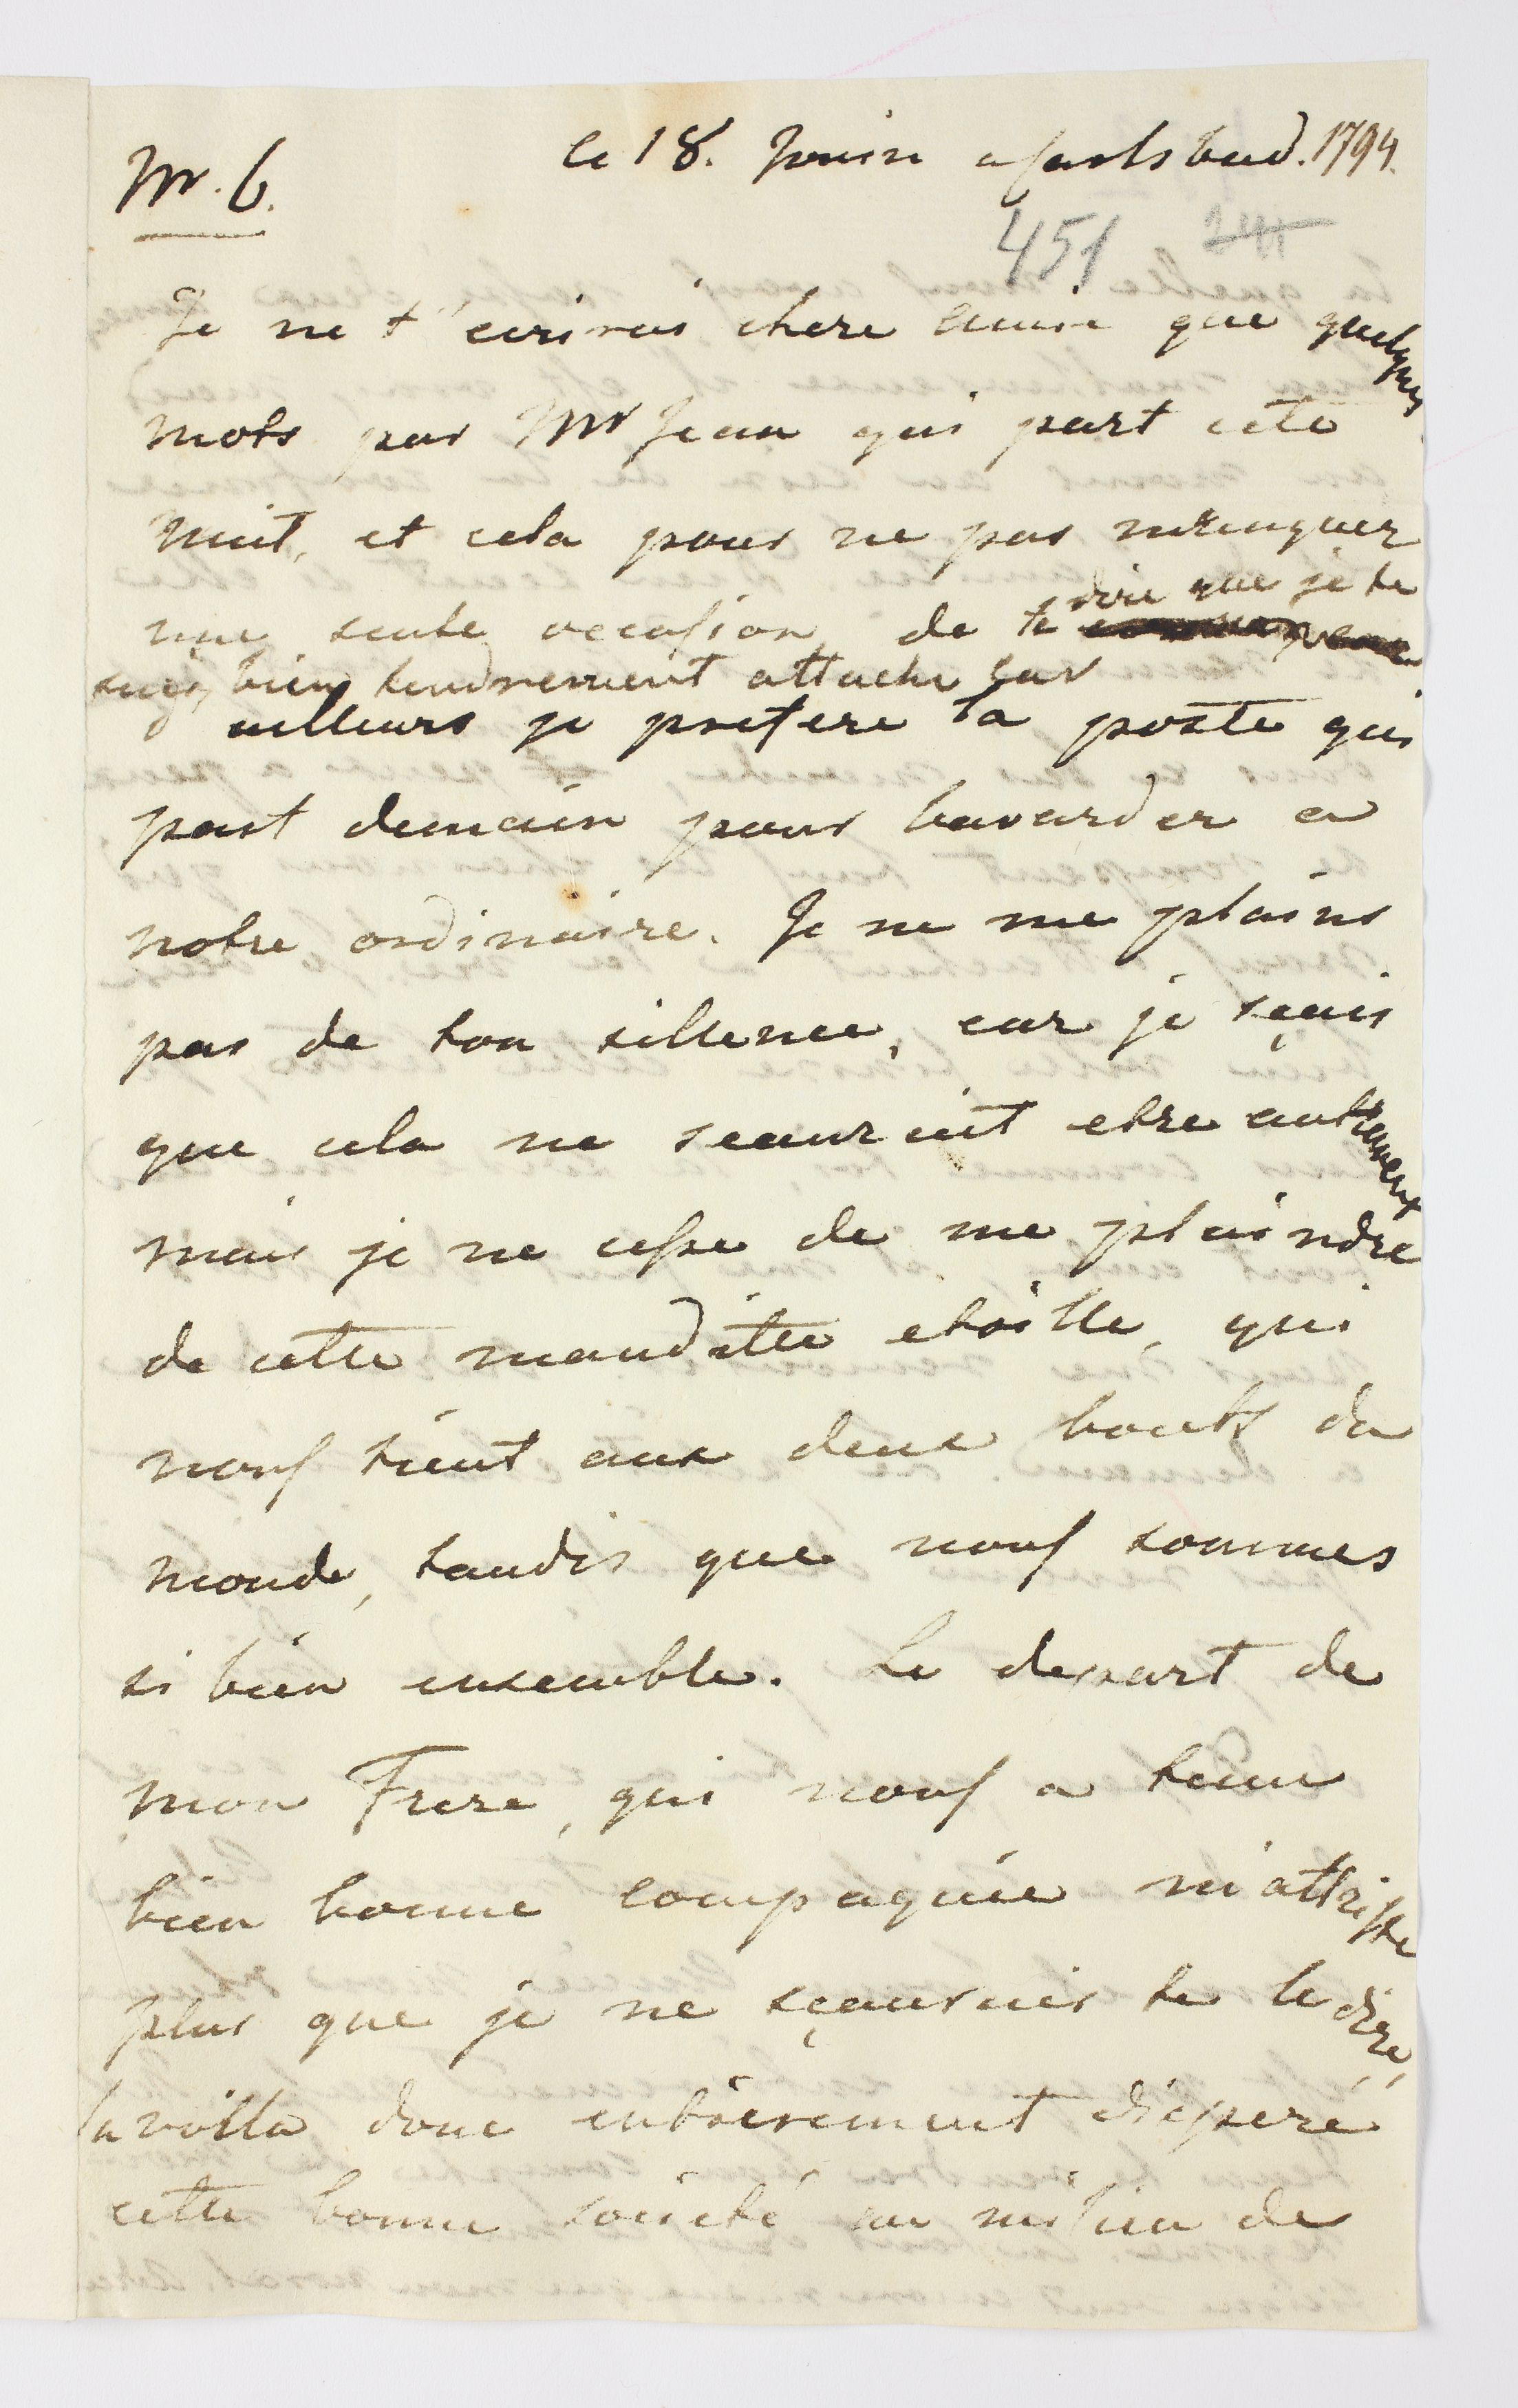 le 18. Juin a Carlsbad. 1794.
Nr. 6.
451
Je ne t'ecrirai chere amie que quelques
mots par Mr Jean qui part cete
nuit, et cela pour ne pas menquer
une seule occasion de te dire que je te
suis bien tendrement attache car
ailleurs je prefere la poste qui
part demain pour bavarder a
notre ordinaire. Je ne me plains
pas de ton sillence, car je sçais
que cela ne scaurait etre autrement
mais je ne cesse de me plaindre
de cette mauditte etoille, qui
nous tient aux deux bouts du
monde, tandis que nous sommes
si bien ensemble. Le depart de
mon Frere, qui nous a tenu
bien bonne compagnie m'attriste
plus que je ne sçaurais te le dire,
la voilla donc entierement disperé
cette bonne societé au milieu de